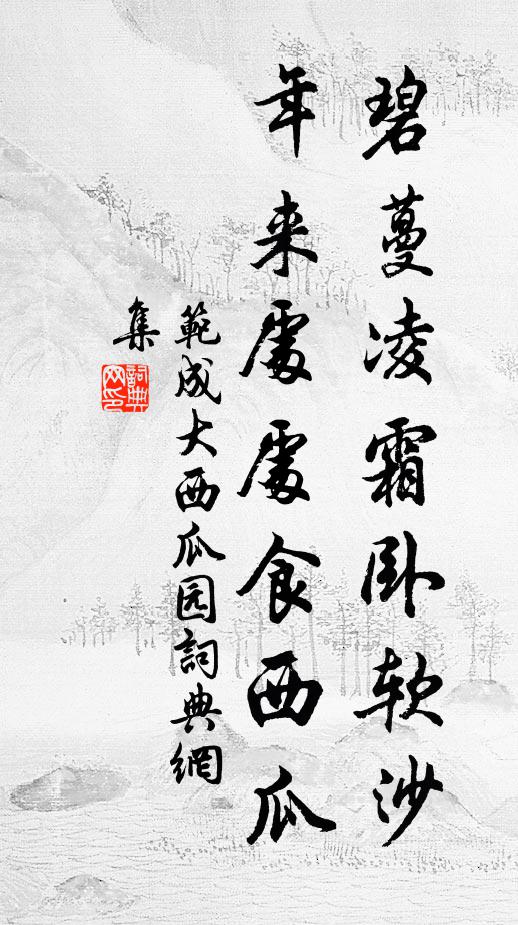 碧蔓凌霜卧软沙
年来處處食西瓜
範成大西瓜园詞典網
集
詞典网印